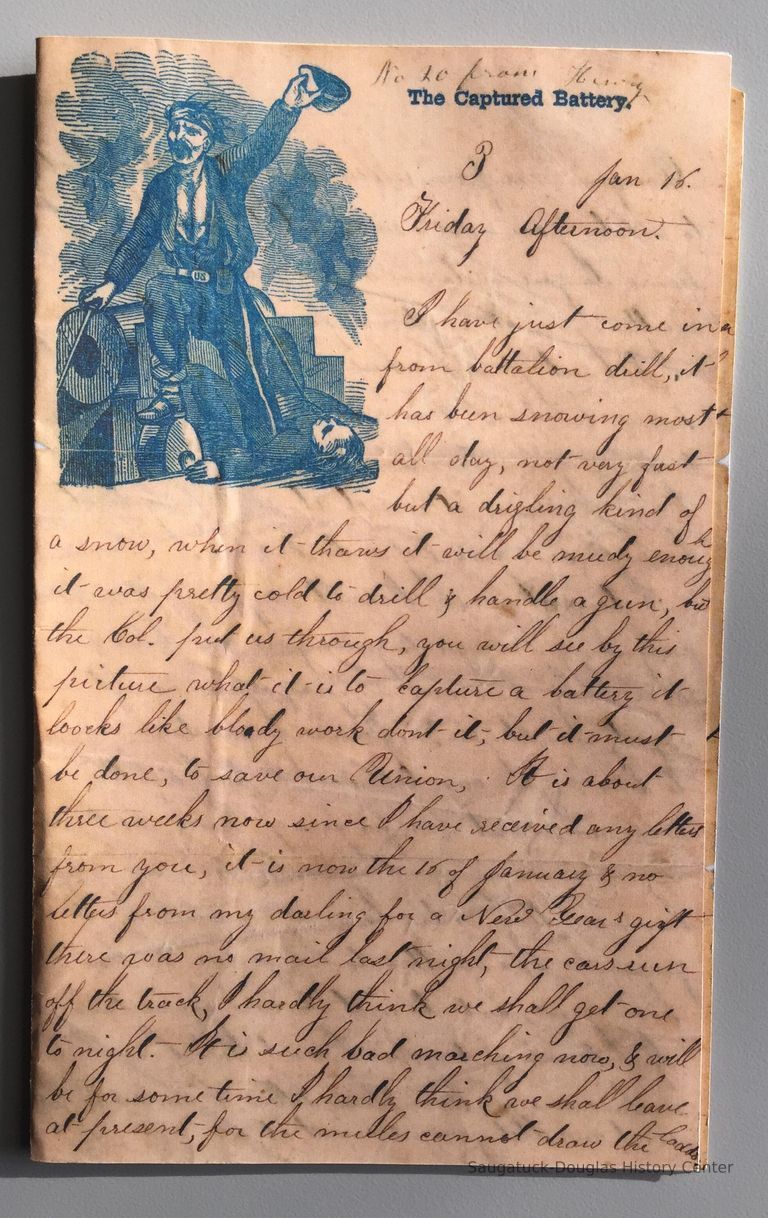 No 20 from Henry
The Captured Battery.
3 Jan 16.
Friday Afternoon.
US
I have just come in
from battalion drill, it
has been snowing most
all day, not very fast
but a drizling kind of
a snow, when it thaws it will be mudy enough
it was pretty cold to drill & handle a gun, but
the Col. put us through, you will see by this
picture what it is to capture a battery it
loocks like bloody work dont it, but it must
be done, to save our Union, It is about
three weeks now since I have received any letters
from you, it is now the 16 of January & no
letters from my darling for a New Years gift
there was no mail last night, the cars run
off the track, I hardly think we shall get one
to night. It is such bad marching now, & will
be for some time I hardly think we shall leave
at present, for the mules cannot draw the loads
Saugatuck-Douglas History Center